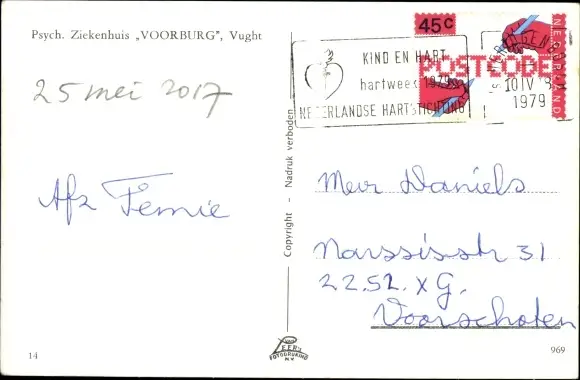 Psych. Ziekenhuis „VOORBURG", Vught
25 mei 2017
Afz Femie
14
Copyright - Nadruk verboden
VAN LEER'S
FOTODRUKIND
N.V.
45c
NEDERLAND
POSTCODE
KIND EN HART
hartweek 1979
NEDERLANDSE HARTSTICHTING
10 IV
1979
Mevr Daniels
Narssisstr 31
2252 XG.
Voorschoten
969